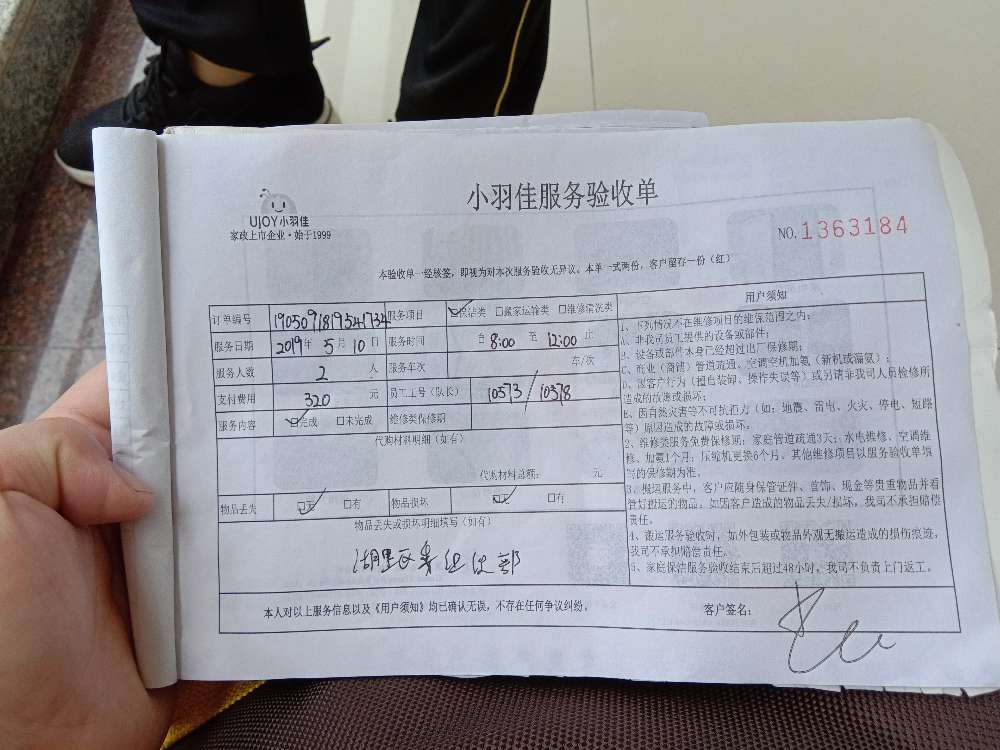 小羽佳服务验收单
UJOY小羽佳
家政上市企业·始于1999
NO.1363184
本验收单一经核签，即视为对本次服务验收无异议。本单一式两份，客户留存一份（红）
订单编号 1905091819541734 服务项目 ☑保洁类 □搬家运输类 □维修清洗类
服务日期 2019年5月10日 服务时间 自 8:00 至 12:00 止
服务人数 2 人 服务车次 车/次
支付费用 320 元 员工工号（队长） 10573/10378
服务内容 ☑完成 □未完成 维修类保修期
代购材料明细（如有）
代购材料总额： 元
物品丢失 ☑无 □有 物品损坏 ☑无 □有
物品丢失或损坏明细填写（如有）
湖里区委组织部
用户须知
1、下列情况不在维修项目的维保范围之内：
A、非我司员工提供的设备或部件；
B、设备或部件本身已经超过出厂保修期；
C、商业（商铺）管道疏通、空调空机加氟（新机或漏氟）；
D、因客户行为（擅自装卸、操作失误等）或另请非我司人员检修所
造成的故障或损坏；
E、因自然灾害等不可抗拒力（如：地震、雷电、火灾、停电、短路
等）原因造成的故障或损坏。
2、维修类服务免费保修期：家庭管道疏通3天；水电维修、空调维
修、加氟1个月；压缩机更换6个月。其他维修项目以服务验收单填
写的保修期为准。
3、搬运服务中，客户应随身保管证件、首饰、现金等贵重物品并看
管好搬运的物品，如因客户造成的物品丢失/损坏，我司不承担赔偿
责任。
4、搬运服务验收时，如外包装或物品外观无搬运造成的损伤痕迹，
我司不承担赔偿责任。
5、家庭保洁服务验收结束后超过48小时，我司不负责上门返工。
本人对以上服务信息以及《用户须知》均已确认无误，不存在任何争议纠纷。 客户签名：